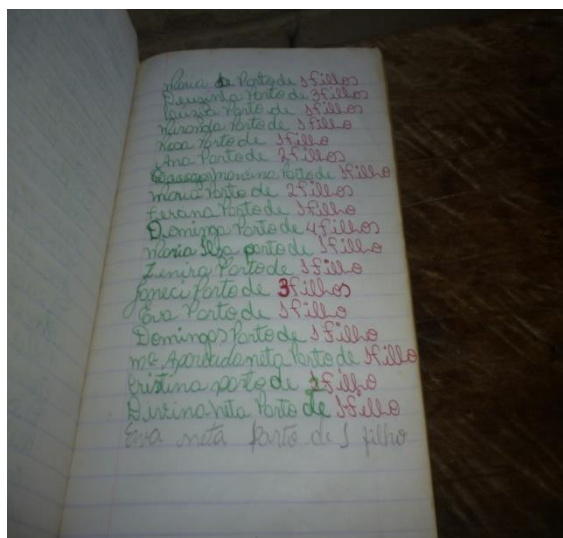 Maria Parto de 5 filhos
Deuzinha Parto de 3 filhos
Luuzia Parto de 1 filhos
Miranda Parto de 1 filho
Rosa Parto de 1 filho
Ana Parto de 2 filhos
Parto de 1 filho
Maria Parto de 2 filhos
Parto de 1 filho
Dominga Parto de 4 filhos
Maria Ilza parto de 1 filho
Zenira Parto de 1 filho
Joneci Parto de 3 filhos
Eva Parto de 1 filho
Domingas Parto de 1 filho
Mª Aparecida neta Parto de 1 filho
Cristina parto de 1 filho
Divina neta Parto de 1 filho
Eva neta Parto de 1 filho